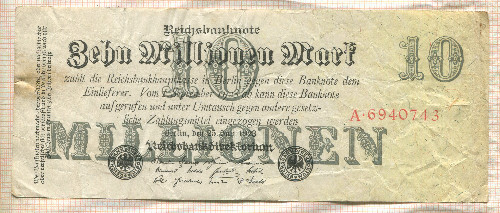 Reichsbanknote
Zehn Millionen Mark
10
10
zahlt die Reichsbankhauptkasse in Berlin gegen diese Banknote dem
Einlieferer. Vom 1. September 1923 ab kann diese Banknote
aufgerufen und unter Umtausch gegen andere gesetz-
liche Zahlungsmittel eingezogen werden
A·6940743
MILLIONEN
Berlin, den 25. Juli 1923
Reichsbankdirektorium